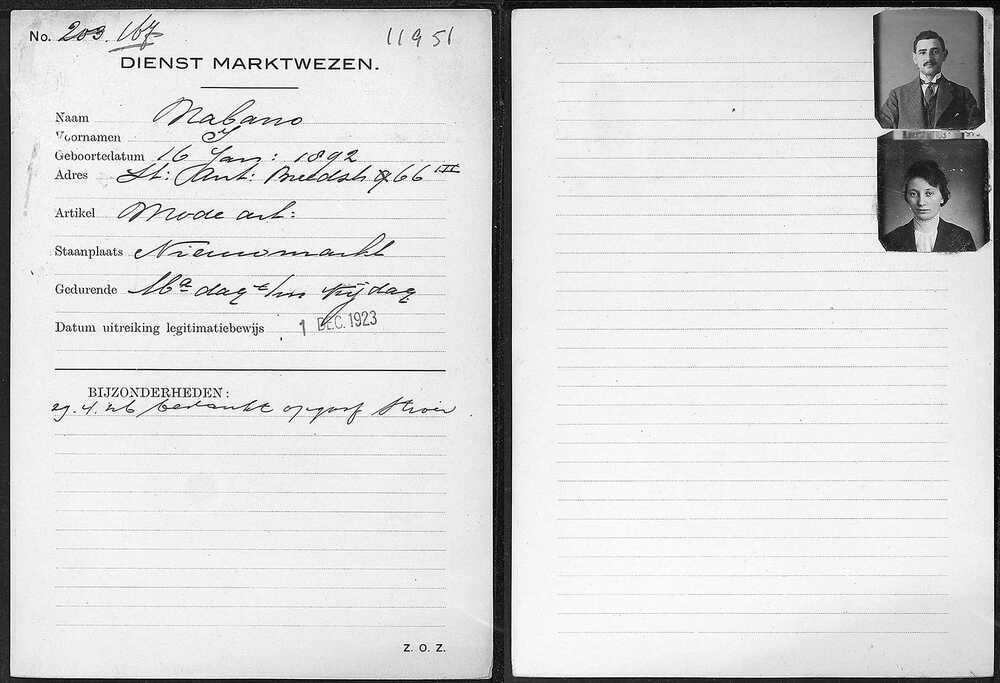 No. 203. 167
11951
DIENST MARKTWEZEN.
Naam Nabarro
Voornamen J
Geboortedatum 16 Jan: 1892
Adres St: Ant: Breedstr 66 III
Artikel Mode art:
Staanplaats Nieuwmarkt
Gedurende Ma dag t/m Vrijdag
Datum uitreiking legitimatiebewijs 1 DEC. 1923
BIJZONDERHEDEN:
29.4.26 bedankt
Z. O. Z.